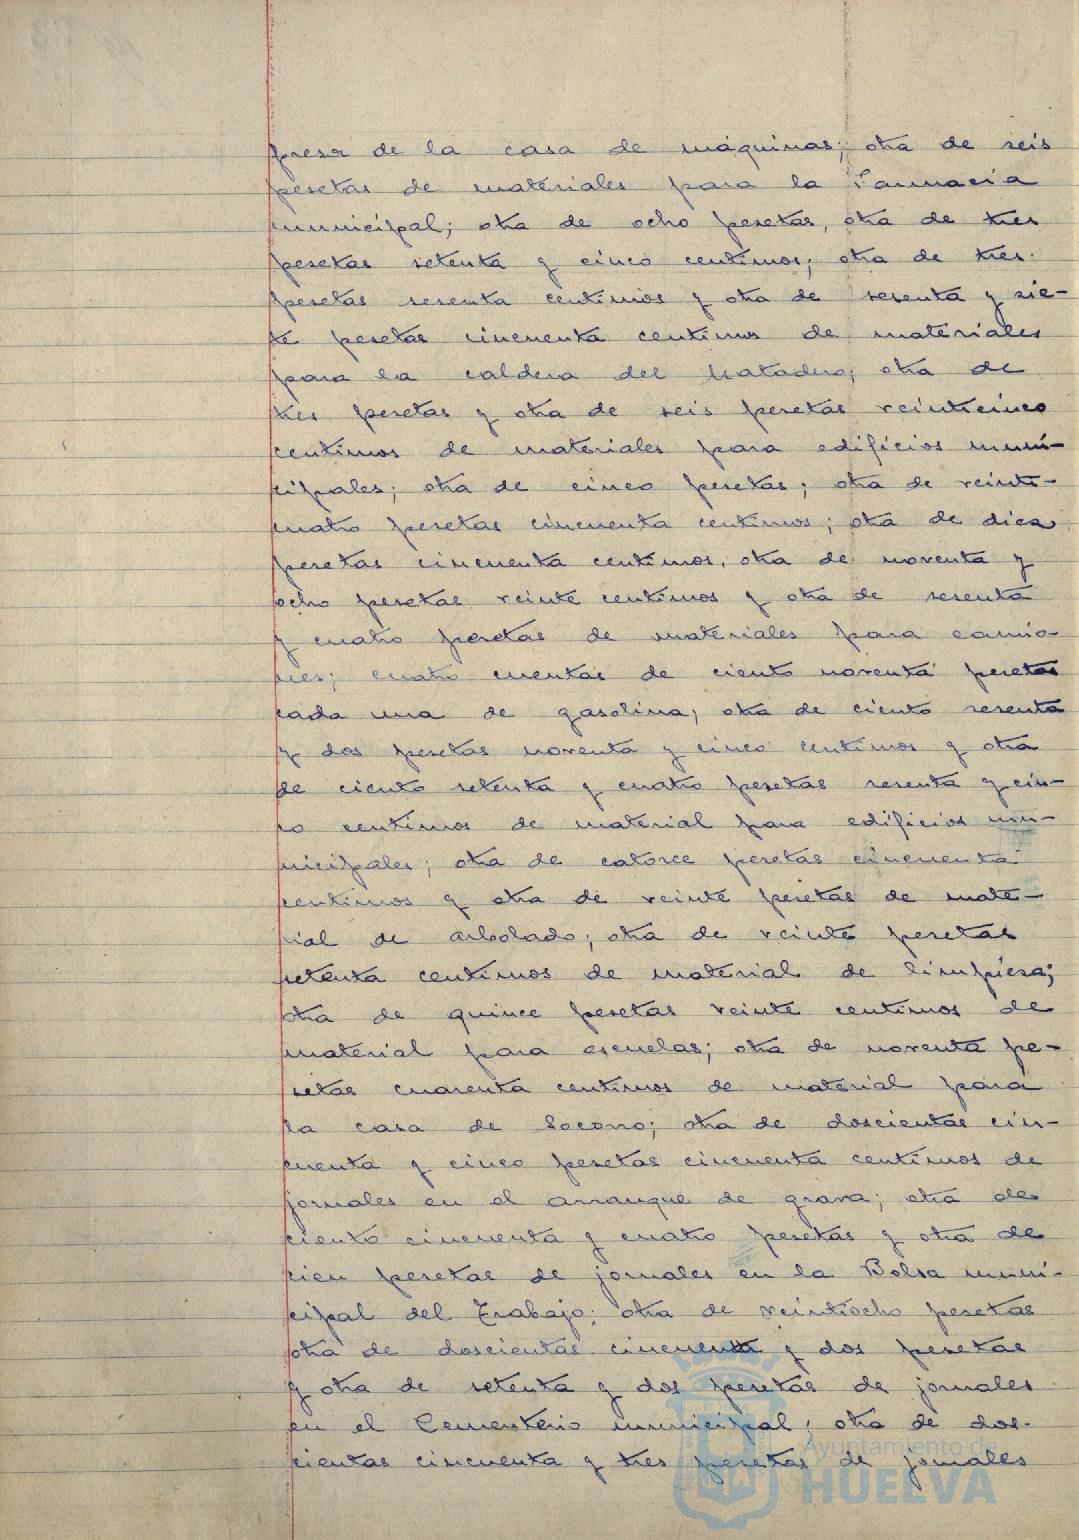 presa de la casa de máquinas; otra de seis
pesetas de materiales para la Farmacia
municipal; otra de ocho pesetas, otra de tres
pesetas setenta y cinco centimos; otra de tres
pesetas sesenta centimos y otra de sesenta y sie-
te pesetas cincuenta centimos de materiales
para la caldera del Matadero; otra de
tres pesetas y otra de seis pesetas veinticinco
centimos de materiales para edificios muni-
cipales; otra de cinco pesetas; otra de veinti-
cuatro pesetas cincuenta centimos; otra de diez
pesetas cincuenta centimos, otra de noventa y
ocho pesetas veinte centimos y otra de sesenta
y cuatro pesetas de materiales para camio-
nes; cuatro cuentas de ciento noventa pesetas
cada una de gasolina; otra de ciento sesenta
y dos pesetas noventa y cinco centimos y otra
de ciento setenta y cuatro pesetas sesenta y cin-
co centimos de material para edificios mu-
nicipales; otra de catorce pesetas cincuenta
centimos y otra de veinte pesetas de mate-
rial de arbolado; otra de veinte pesetas
setenta centimos de material de limpieza;
otra de quince pesetas veinte centimos de
material para escuelas; otra de noventa pe-
setas cuarenta centimos de material para
la casa de Socorro; otra de doscientas cin-
cuenta y cinco pesetas cincuenta centimos de
jornales en el arranque de grava; otra de
ciento cincuenta y cuatro pesetas y otra de
cien pesetas de jornales en la Bolsa muni-
cipal del Trabajo; otra de veintiocho pesetas
otra de doscientas cincuenta y dos pesetas
y otra de setenta y dos pesetas de jornales
en el Cementerio municipal; otra de dos-
cientas cincuenta y tres pesetas de jornales
Ayuntamiento de
HUELVA